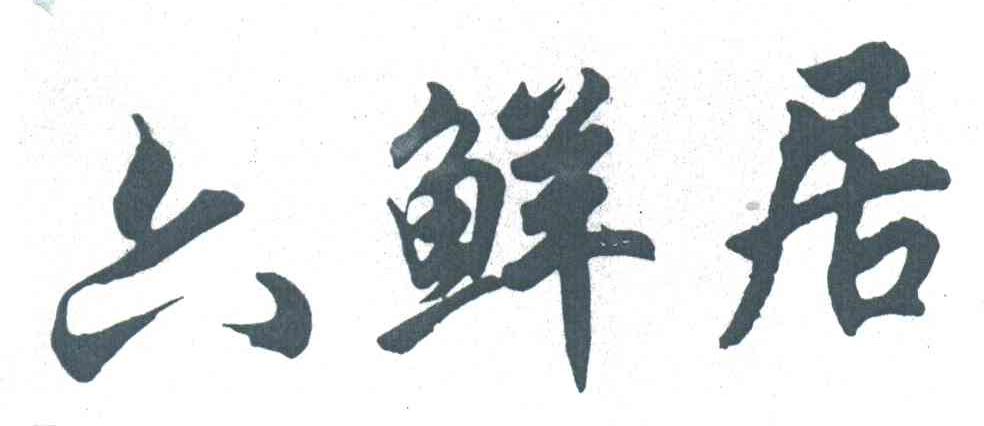 六鲜居